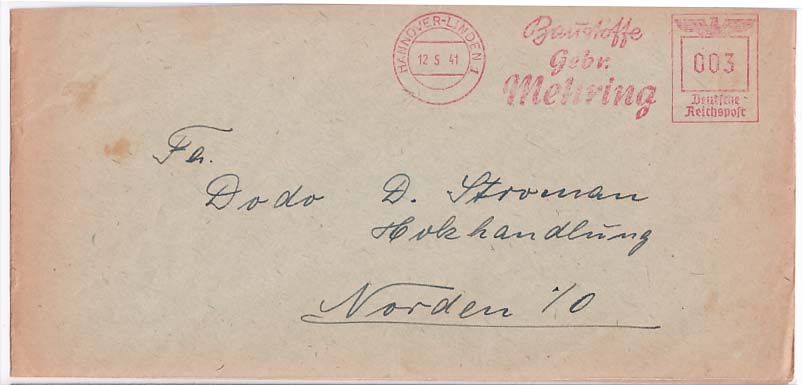 HANNOVER-LINDEN 1
12.5.41
Baustoffe
Gebr.
Mehring
003
Deutsche
Reichspost
Fa.
Dodo D. Stroman
Holzhandlung
Norden i/O